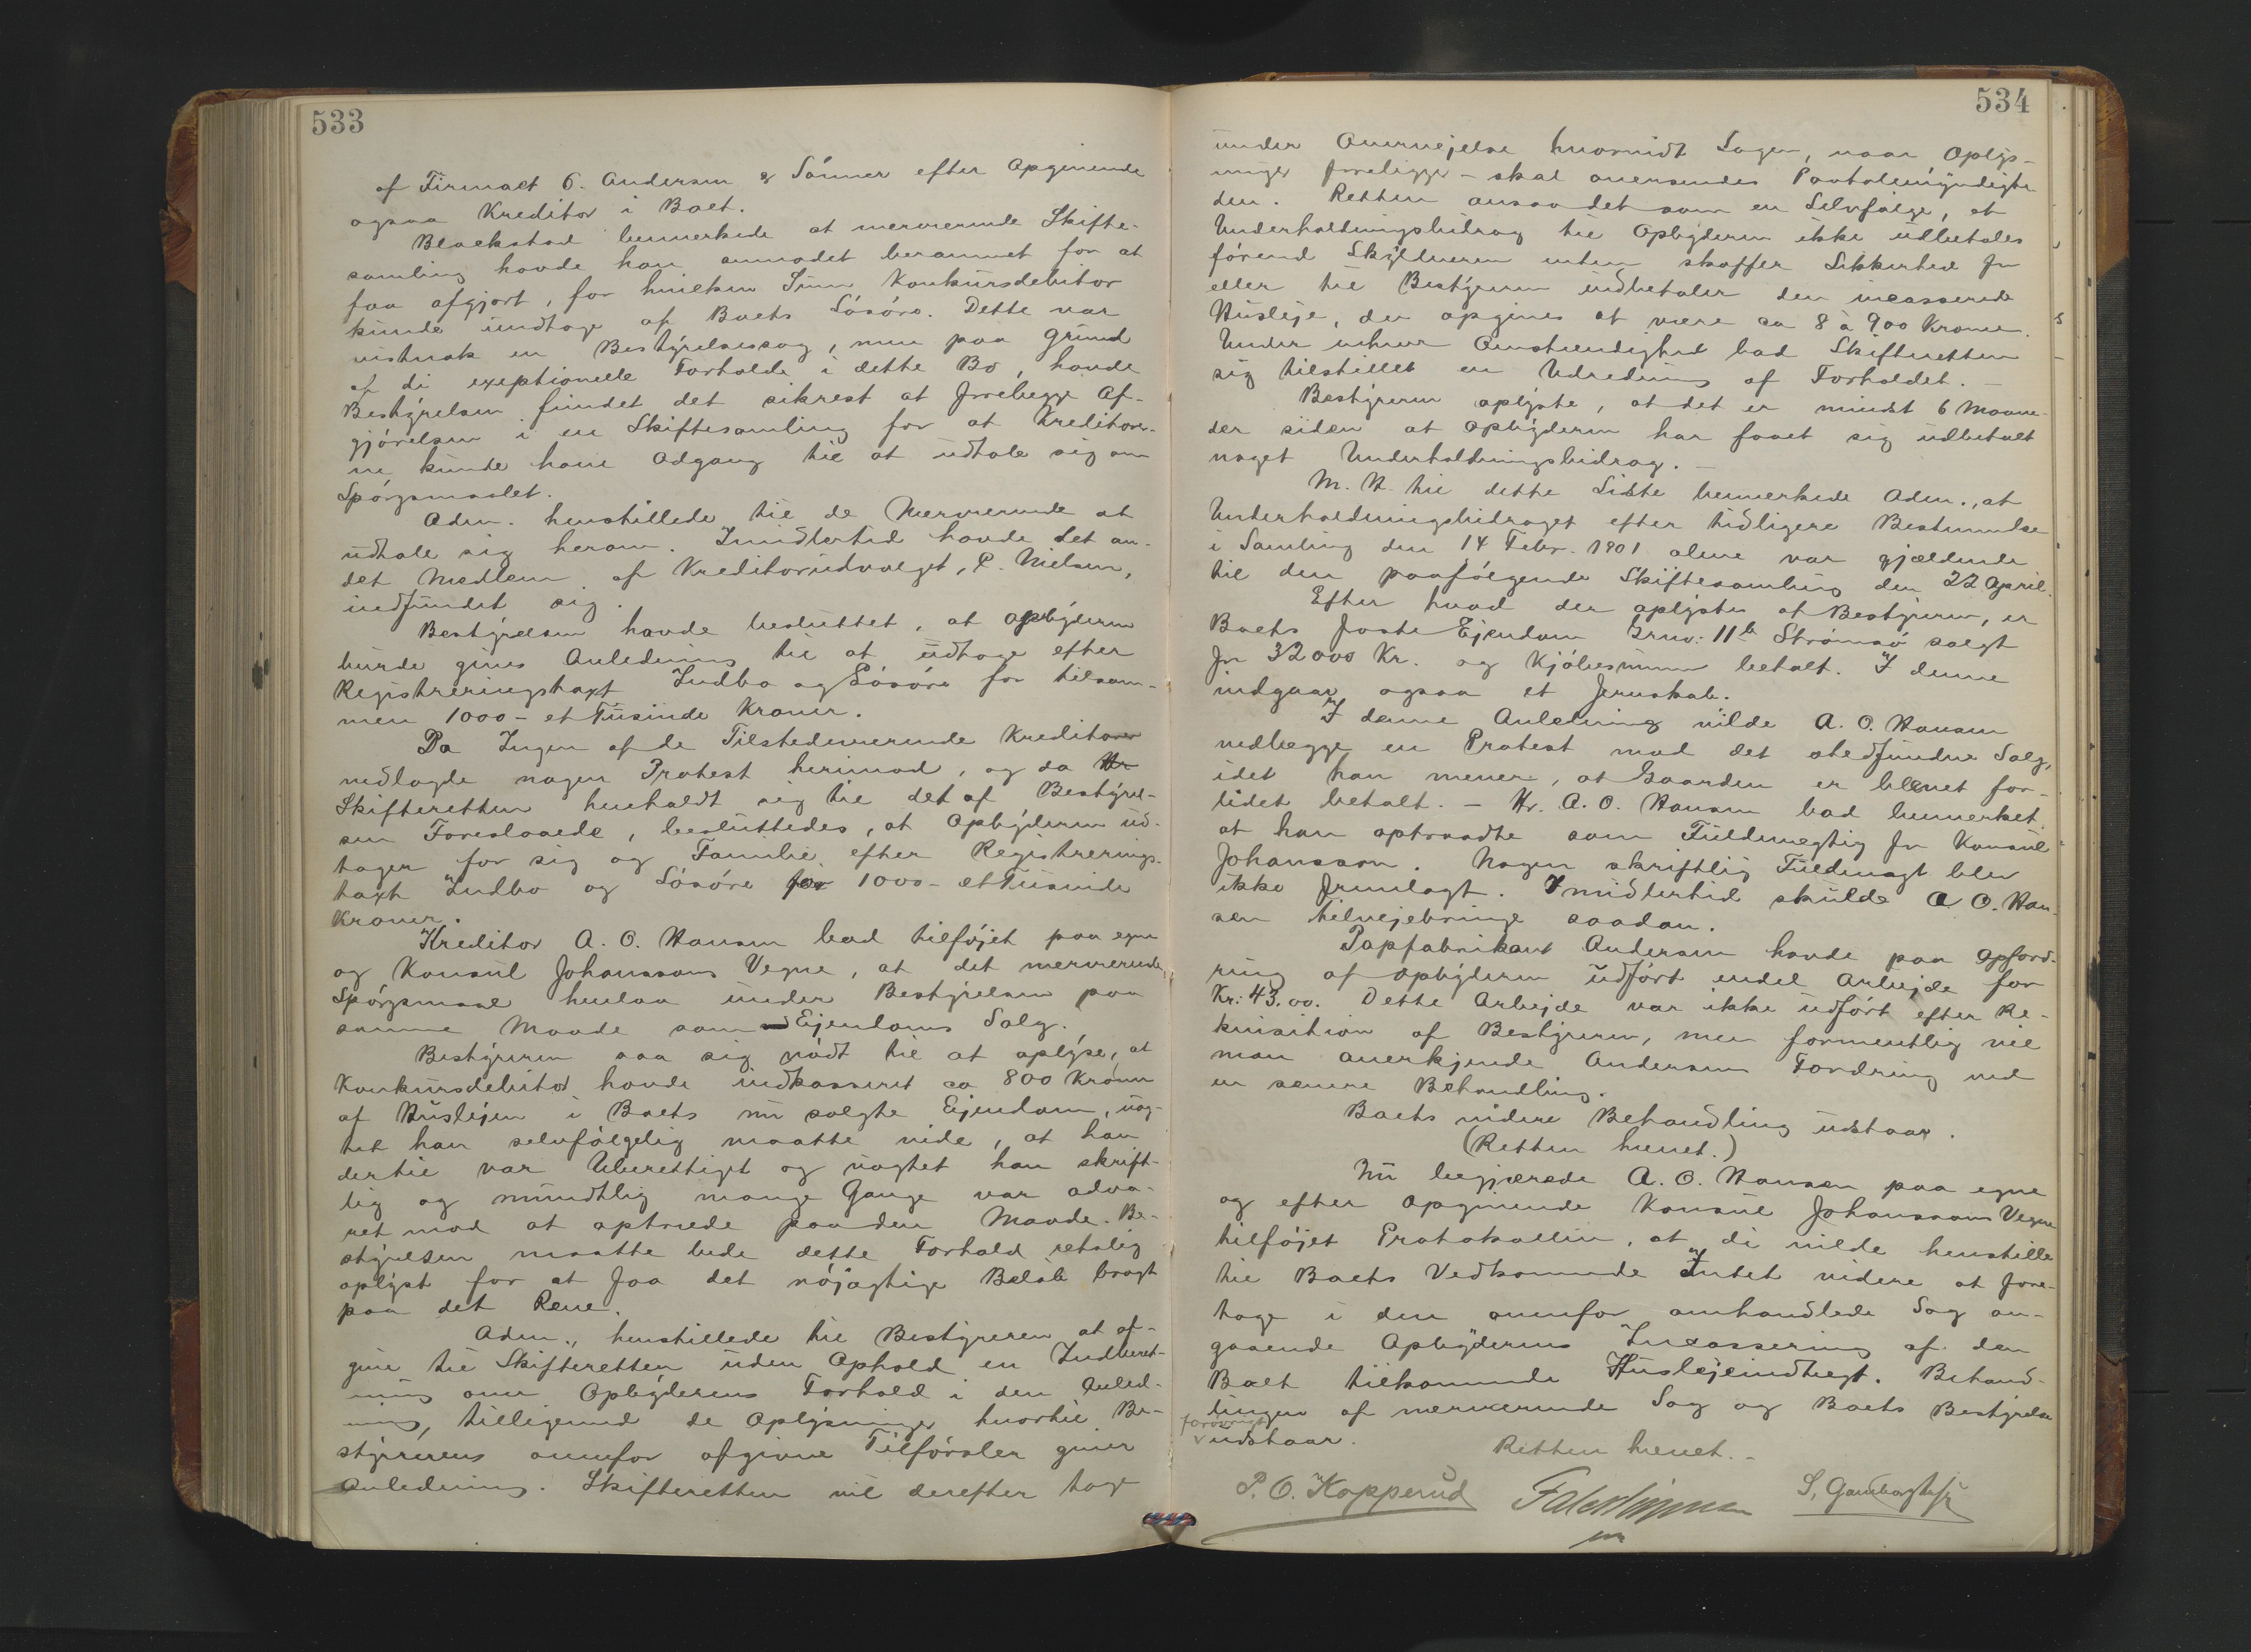 533
af Firmaet C. Andersen & Sønner efter Opgivende
ogsaa Kreditor i Boet.
Blackstad bemerkede at nerværende Skifte-
samling havde han anmodet berammet for at
faa afgjort, for hvilken Sum Konkursdebitor
kunde undtage af Boets Løsøre. Dette var
vistnok en Bestyrelsessag, men paa Grund
af de exeptionelle Forholde i dette Bo, havde
Bestyrelsen fundet det sikrest at forelegge Af-
gjørelsen i en Skiftesamling for at Kreditorer-
ne kunde have Adgang til at udtale sig om
Spørgsmaalet.
Adm. henstillede til de Nerværende at
udtale sig herom. Imidlertid havde det an-
det Medlem af Kreditorudvalget, P. Nielsen,
indfundet sig.
Bestyrelsen havde besluttet, at Opbyderen
burde gives Anledning til at udtage efter
Registreringstaxt Indbo og Løsøre for tilsam-
men 1000 – et Tusinde Kroner.
Da Ingen af de Tilstedeverende Kreditorer
nedlagde nogen Protest herimod, og da Hr
Skifteretten henholdt sig til det af Bestyrel-
sen Foreslaaede, besluttedes, at Opbyderen ud-
tager for sig og Familie efter Registrerings-
taxt Indbo og Løsøre for 1000 – et Tusinde
Kroner.
Kreditor A. O. Hansen bad tilføjet paa egne
og Konsul Johanssons Vegne, at det nerværende
Spørgsmaal henlaa under Bestyrelsen paa
samme Maade som Ejendoms Salg.
Bestyreren saa sig nødt til at oplyse, at
Konkursdebitor havde indkasseret ca 800 Kroner
af Huslejen i Boets nu solgte Ejendom, uag-
tet han selvfølgelig maatte vide, at han
dertil var Uberettiget og uagtet han skrift-
lig og mundtlig mange Gange var adva-
ret mod at optræde paa den Maade. Be-
styrelsen maatte bede dette Forhold retslig
oplyst for at faa det nøjagtige Beløb bragt
paa det Rene.
Adm. henstillede til Bestyreren at af-
give til Skifteretten uden Ophold en Indberet-
ning om Opbyderens Forhold i den Anled-
ning, tilligemed de Oplysninger hvortil Be-
styrerens ovenfor afgivne Tilførsler giver
Anledning. Skifteretten vil derefter tage
534
under Overvejelse hvorvidt Sagen, naar Oplys-
ninger foreligger – skal oversendes Paatalemyndighe
den. Retten ansaa det som en Selvfølge, at
Underholdningsbidrag til Opbyderen ikke udbetales
førend Skyldneren enten skaffer Sikkerhed for
eller til Bestyreren indbetaler den incasserede
Husleje, der opgives at være ca 8 à 900 Kroner.
Under enhver Omstændighed bad Skifteretten
sig tilstillet en Udredning af Forholdet. –
Bestyreren oplyste, at det er mindst 6 Maane-
der siden at Opbyderen har faaet sig udbetalt
noget Underholdningsbidrag. –
M. H. til dette Sidste bemerkede Adm., at
Underholdningsbidraget efter tidligere Bestemmelse
i Samling den 14 Febr. 1901 alene var gjældende
til den paafølgende Skiftesamling den 22 April.
Efter hvad der oplystes af Bestyreren, er
Boets faste Ejendom Grno: 11b Strømsø solgt
for 32000 Kr. og Kjøbesummen betalt. I denne
indgaar ogsaa et Jernskab.
I denne Anledning vilde A. O. Hansen
nedlegge en Protest mod det stedfundne Salg,
idet han mener, at Gaarden er blevet for-
lidet betalt. – Hr. A. O. Hansen bad bemerket
at han optraadte som Fuldmegtig for Konsul
Johansson. Nogen skriftlig Fuldmagt blev
ikke fremlagt. Imidlertid skulde A O. Han-
sen tilvejebringe saadan.
Papfabrikant Andersen havde paa Opford-
ring af Opbyderen udført endel Arbejde for
Kr: 43.00. Dette Arbejde var ikke udført efter Re-
kvisition af Bestyreren, men formentlig vil
man anerkjende Andersens Fordring ved
en senere Behandling.
Boets videre Behandling udstaar.
(Retten hævet.)
Nu begjærede A. O. Hansen paa egne
og efter Opgivende Konsul Johanssons Vegne
tilføjet Protokollen, at de vilde henstille
til Boets Vedkommende Intet videre at fore-
tage i den ovenfor omhandlede Sag an-
gaaende Opbyderens Incassering af den
Boet tilkommende Huslejeindtegt. Behand-
lingen af nerværende Sag og Boets Bestyrelse
forøvrigt
udstaar.
Retten hævet. –
P. O. Kopperud